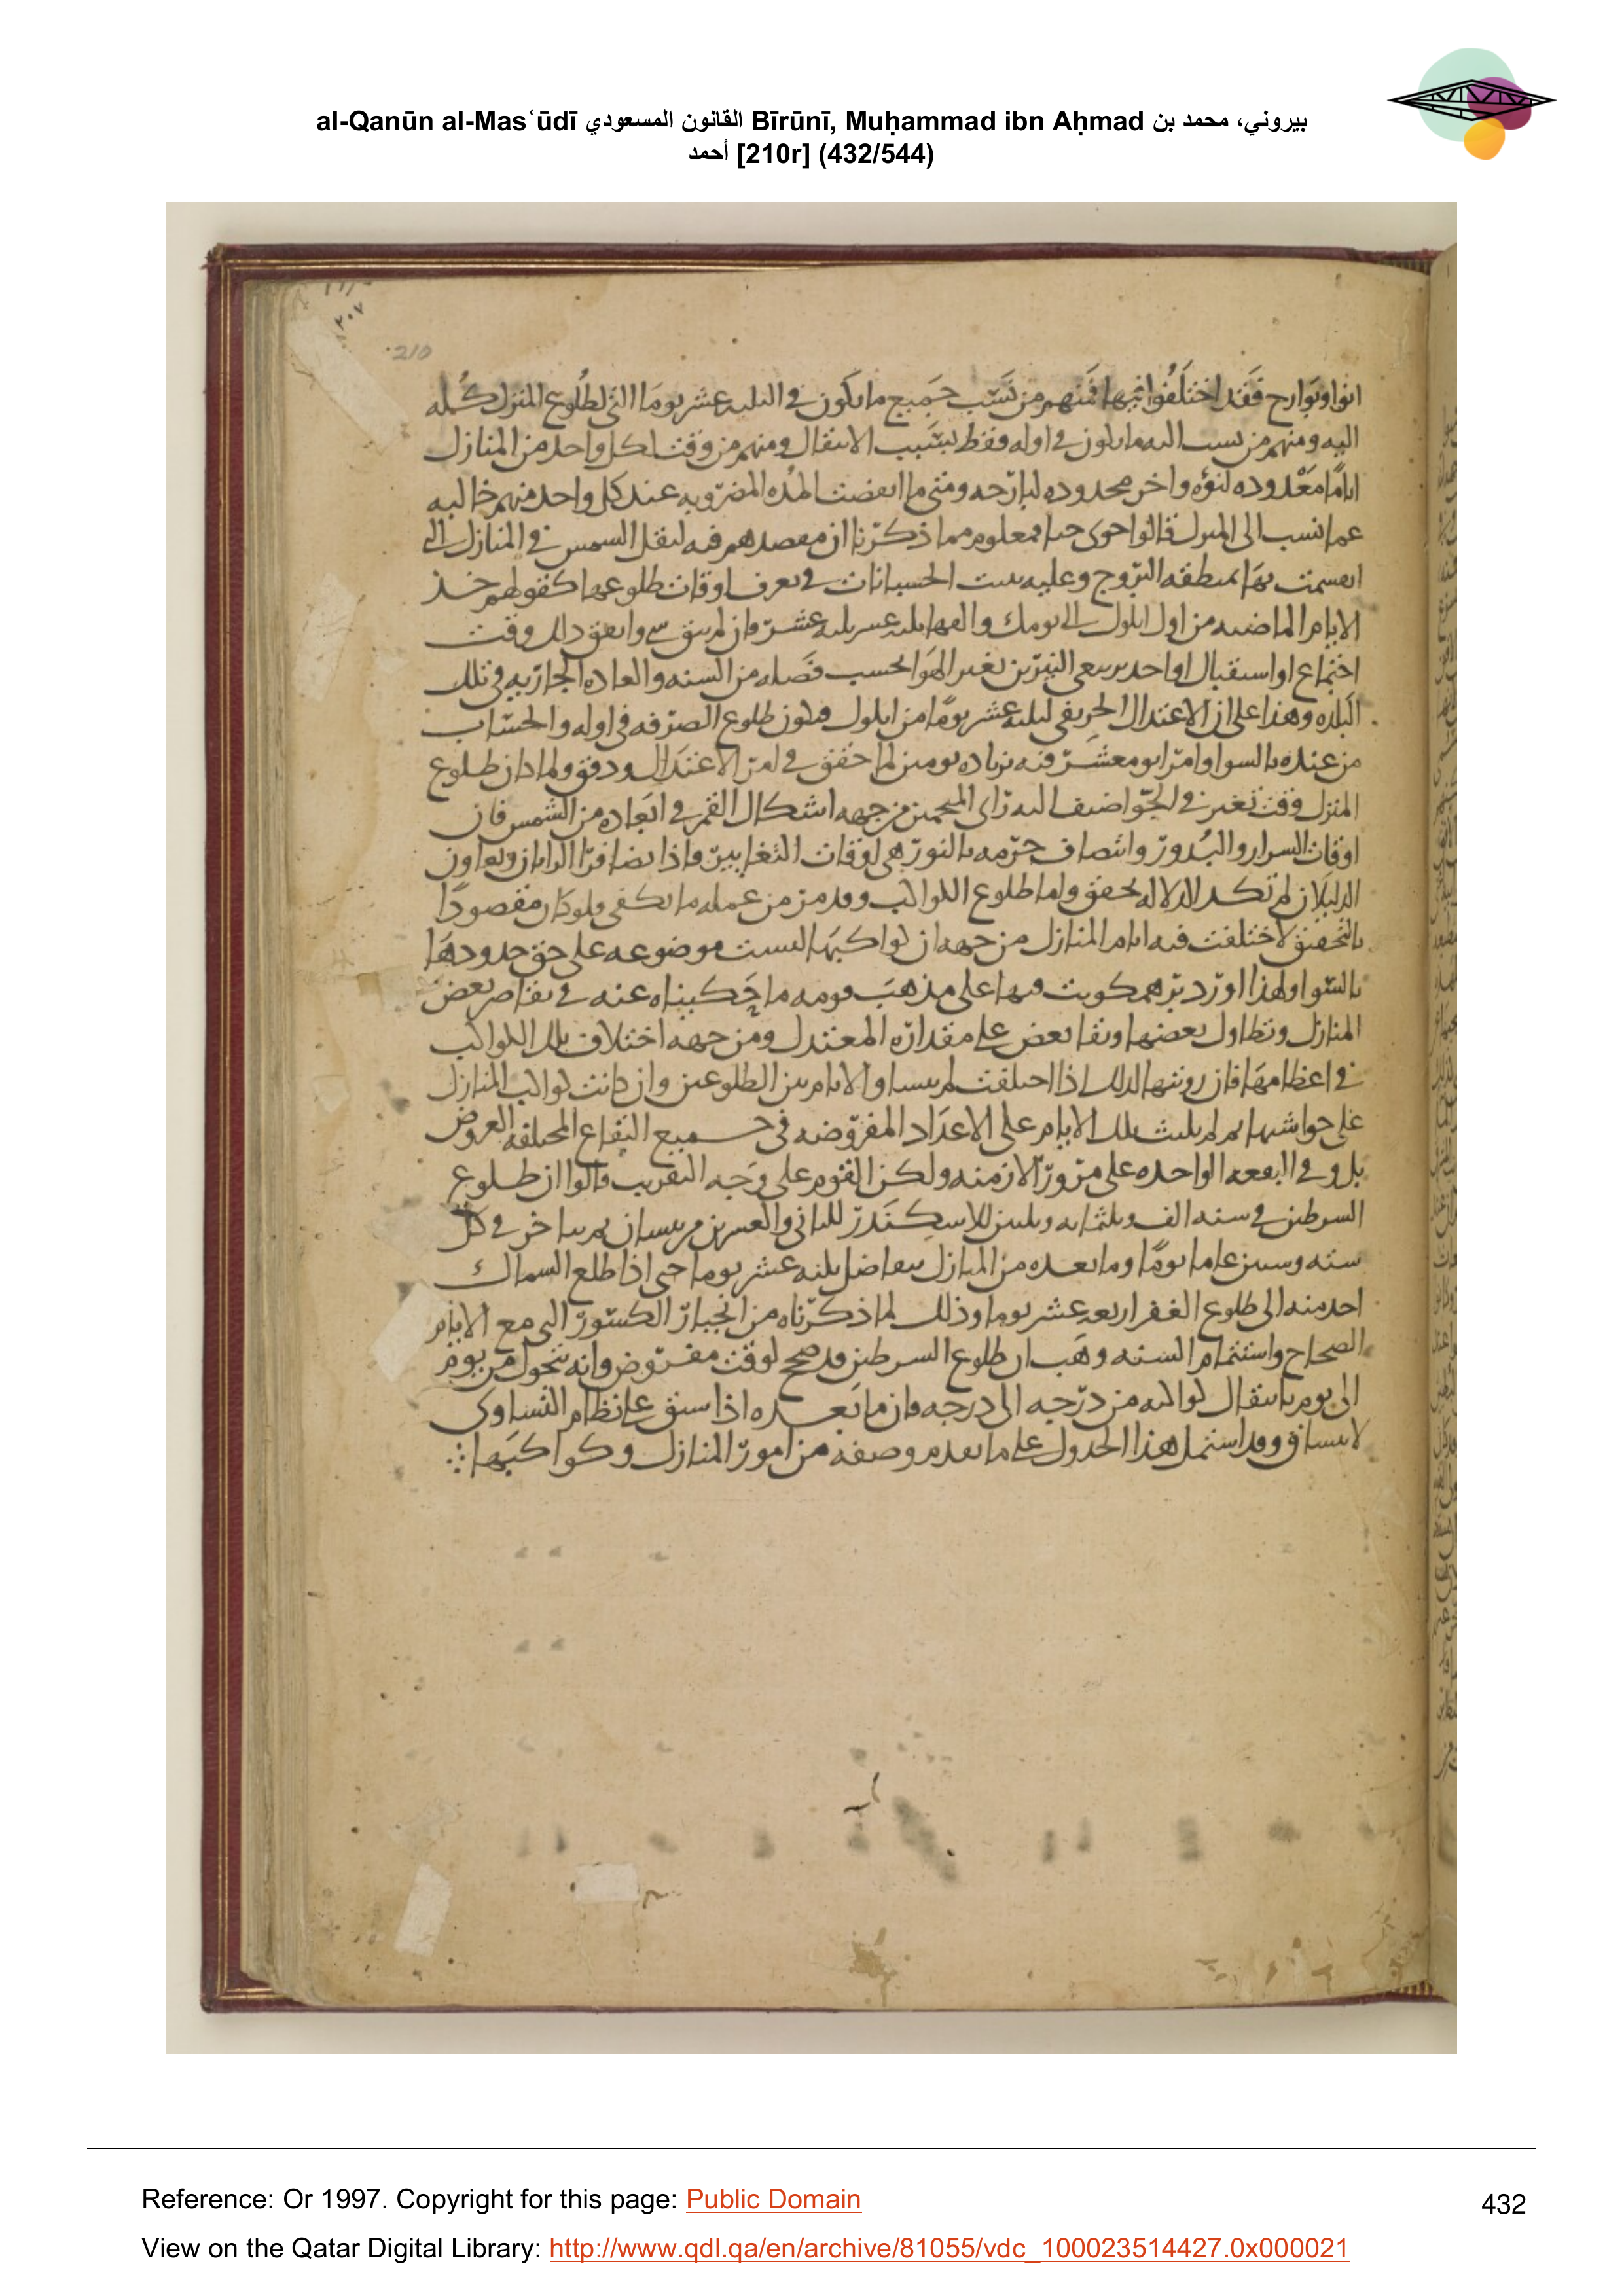 al-Qanūn al-Masʿūdī القانون المسعودي Bīrūnī, Muḥammad ibn Aḥmad بيروني، محمد بن
أحمد [210r] (432/544)
٢٠٧
210
انوا وبوارح فقد اختلفوا فيها فمنهم من نسب جميع ما يكون في الثلثه عشر يوما التي لطلوع المنزل كله
اليه ومنهم من نسب اليه ما يكون في اوله فقط بسبب الانتقال ومنهم من وقت لكل واحد من المنازل
اياما معدوده لنوءه واخر محدوده لبارحه ومتى ما انقضت المده المضروبه عند كل واحد منهم خاليه
عما نسب الى المنزل قالوا خوى ومعلوم مما ذكرنا ان مقصدهم فيه لتنقل الشمس في المنازل التي
انقسمت بها منطقه البروج وعليه بنيت الحسبانات في تعرف اوقات طلوعها كقولهم خذ
الايام الماضيه من اول ايلول الى يومك والقها ثلثه عشر ثلثه عشر فان لم يبق شي واتفق ذلك وقت
اجتماع او استقبال او احد تربيعي النيرين تغير الهوا بحسب فصله من السنه والعاده الجاريه في تلك
البلده وهذا على ان الاعتدال الخريفي لثلثه عشر يوما من ايلول فيكون طلوع الصرفه في اوله والحساب
من عنده بالسوا وامر ابو معشر فيه بزياده يومين لما حقق في امر الاعتدال ودقق ولما كان طلوع
المنزل وقت تغير في الجو اضيف اليه راى المنجمين من جهه اشكال القمر في ابعاده من الشمس فان
اوقات السرار والبدور وانتصاف جرمه بالنور هي اوقات التغايير واذا تضافر الرايان وتعاون
الدليلان لم تكد الدلاله تخفق واما طلوع الكواكب وقد مر من عمله ما يكفي ولو كان مقصودا
بالتحقيق لاختلفت فيه ايام المنازل من جهه ان كواكبها ليست موضوعه على حق حدودها
بالسوا ولهذا اورد برهمكوبت فيها على مذهب قومه ما حكيناه عنه في تقاصر بعض
المنازل وتطاول بعضها وبقا بعض على مقداره المعتدل ومن جهه اختلاف تلك الكواكب
في اعظامها فان رويتها لذلك اذا اختلفت لم يتساو الايام بين الطلوعين وان كانت كواكب المنازل
على حواشيها ثم لم يلبث تلك الايام على الاعداد المفروضه في جميع البقاع المختلفه العروض
بل وفي البقعه الواحده على مرور الازمنه ولكن القوم على وجه التقريب قالوا ان طلوع
السرطين في سنه الف وثلثمايه وثلثين للاسكندر للثاني والعشرين من نيسان ثم يتاخر في كل
سته وستين عاما يوما وما بعده من المنازل يتفاضل بثلثه عشر يوما حتى اذا طلع السماك
اخذ منه الى طلوع الغفر اربعه عشر يوما وذلك لما ذكرناه من انجبار الكسور التي مع الايام
الصحاح واستتمام السنه وهب ان طلوع السرطين قد صح لوقت مفروض وانه تحول من يوم
الى يوم بانتقال كواكبه من درجه الى درجه فان ما بعده اذا سيق على نظام التساوى
لا ينساق وقد اشتمل هذا الجدول على ما تقدم وصفه من امور المنازل وكواكبها
Reference: Or 1997. Copyright for this page: Public Domain
432
View on the Qatar Digital Library: http://www.qdl.qa/en/archive/81055/vdc_100023514427.0x000021